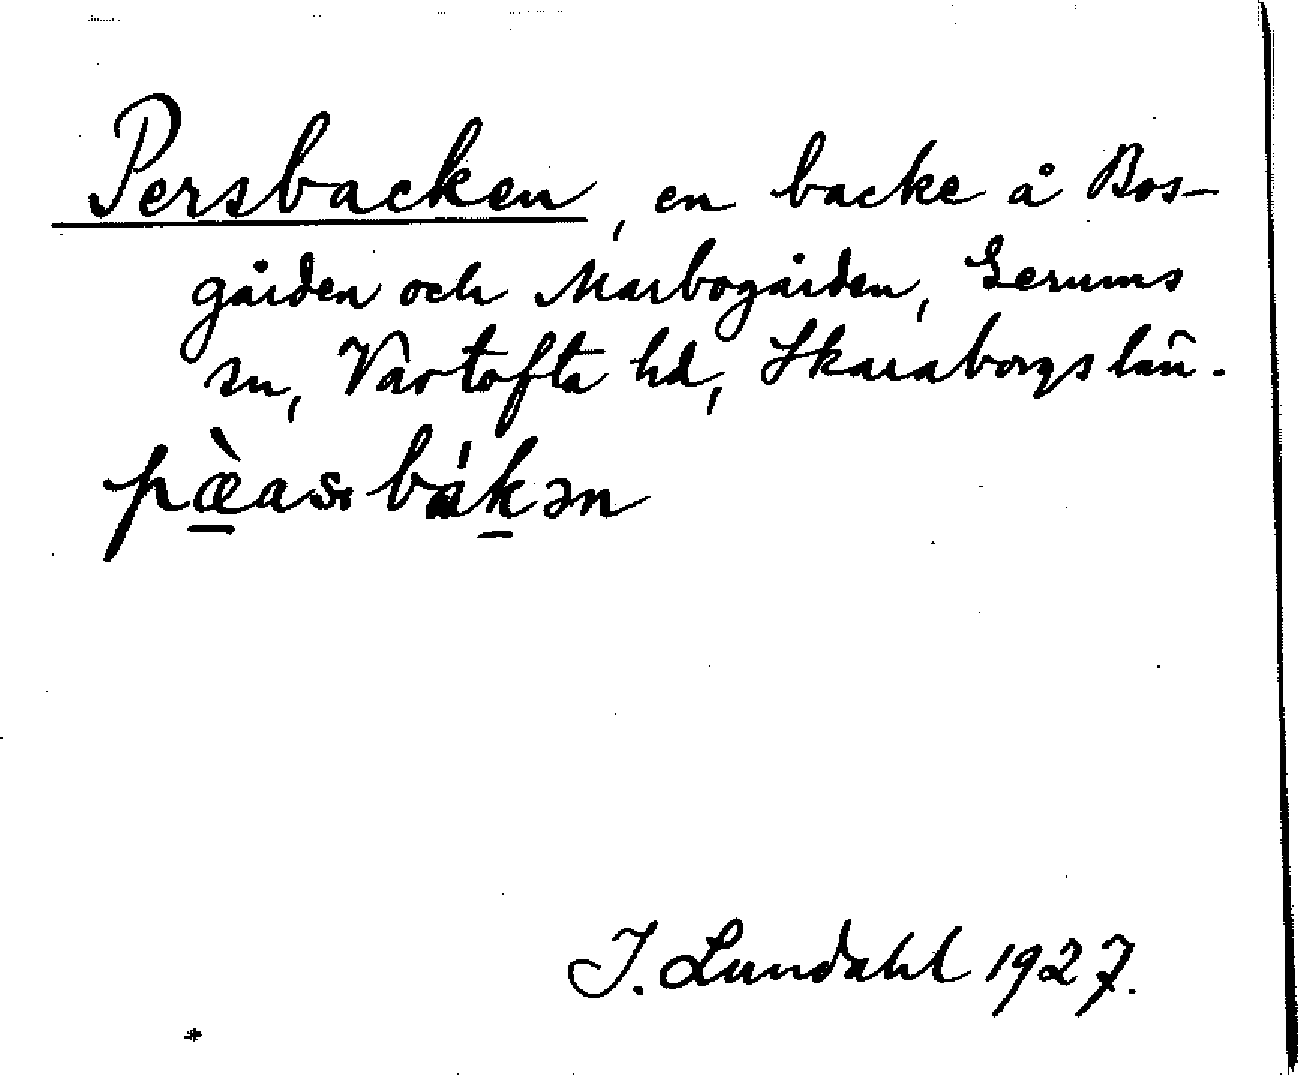 Persbacken, en backe å Bos-
gården och Marbogården, Gerums
sn, Vartofta hd, Skaraborgs län.
pæ̠̀as. bák̠ən
I. Lundahl 1927.